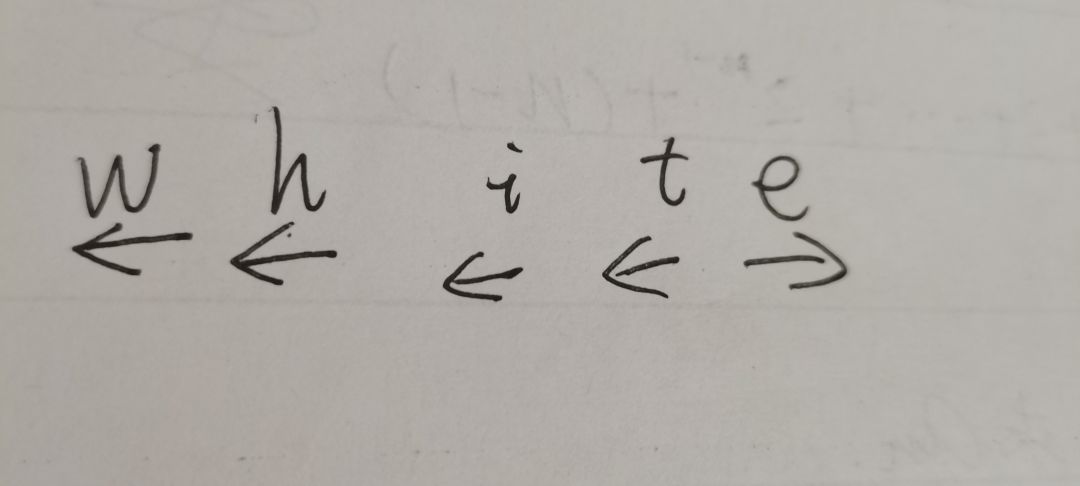 w h i t e
← ← ← ← →